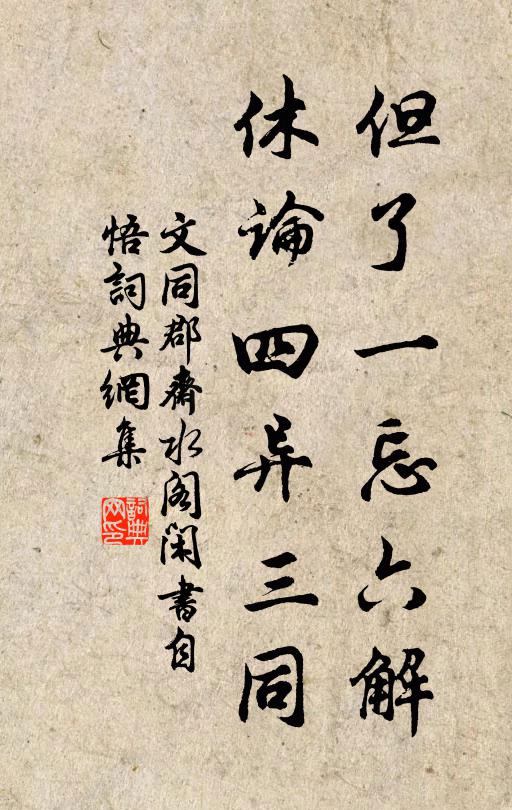 但了一忘六解
休论四异三同
文同郡斋水阁闲书自
悟词典网集
詞典
网印